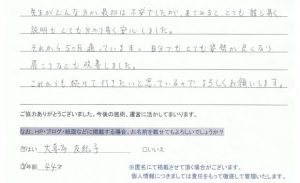 先生がどんな方か最初は不安でしたが、来てみると、とても話し易く
説明もとても分かり易く安心しました。
それから5ヶ月通っています。自分でもとても姿勢が良くなり
肩こりなども改善しました。
これからも続けて行きたいと思っているのでよろしくお願いします。
ご協力ありがとうございました。今後の施術、運営に活かしてまいります。
なお、HP・ブログ・紙面などに掲載する場合、お名前を載せてもよろしいでしょうか?
はい 大喜多 友紀子 ロいいえ
年齢 44才
※匿名にて掲載させて頂く場合がございます。
個人情報につきましては責任をもって徹底して管理いたします。